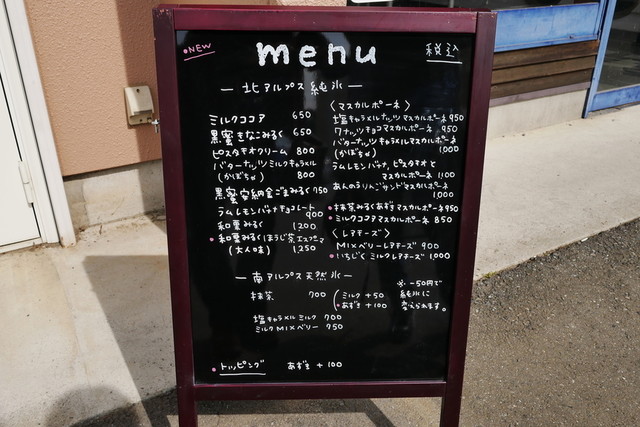 •NEW
menu
税込
— 北アルプス 純氷 —
ミルクココア 650
黒蜜きなこみるく 650
ピスタチオクリーム 800
バターナッツミルクキャラメル
(かぼちゃ) 800
黒蜜安納金ごまみるく 750
ラムレモンバナナチョコレート
900
和栗みるく 1,200
•和栗みるくほうじ茶エスプーマ
(大人味) 1,250
〈マスカルポーネ〉
塩キャラメルナッツマスカルポーネ 950
ワナッツチョコマスカルポーネ 950
バターナッツキャラメルマスカルポーネ
(かぼちゃ) 1,000
ラムレモンバナナ、ピスタチオと
マスカルポーネ 1,100
あんのうりんごサンドマスカルポーネ
1,000
•抹茶みるくあずきマスカルポーネ 950
•ミルクココアマスカルポーネ 850
〈レアチーズ〉
MIXベリーレアチーズ 900
•いちじくミルクレアチーズ 1,000
— 南アルプス天然氷 —
抹茶 700
(ミルク +50
•あずき +100
塩キャラメルミルク 700
ミルクMIXベリー 750
※ -50円で
純氷に
変えられます。
•トッピング あずき +100